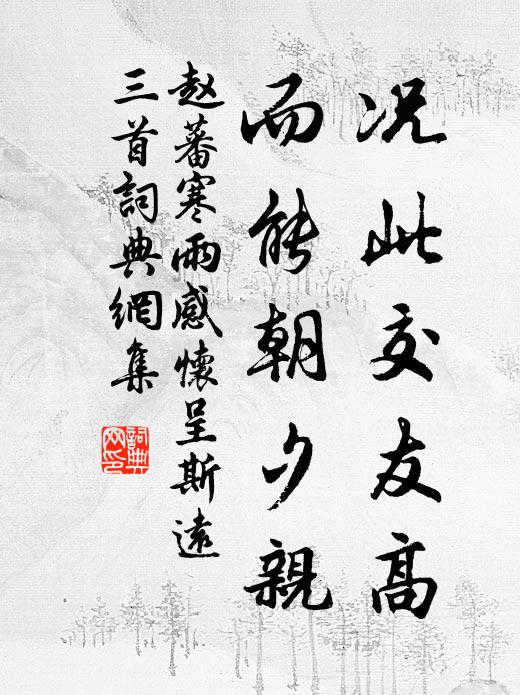 况此交友高
而能朝夕親
赵蕃寒雨感懷呈斯遠
三首詞典網集
詞典
网印